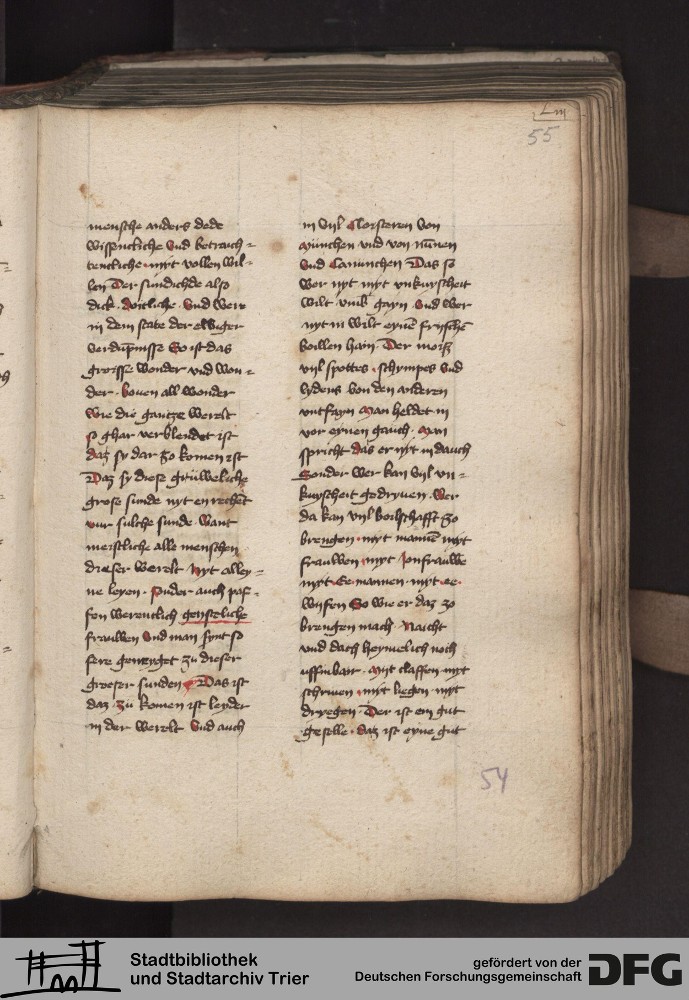 Liii
55
mensche anders dede
wissentliche Vnd betrach-
tentliche myt vollen wil-
len Der sundichde also
dick doitliche Vnd were
in dem state der ewiger
verdupnisse So ist das
groisse wonder vnd won-
der bouen all wonder
wie die gantze werelt
so ghar verblendet ist
daz sy dar zo komen ist
Daz sy diese gruweliche
grose sunde nyt en rechent
vur sulche sunde want
meistliche alle menschen
dieser werelt Nyt alley-
ne leyen sunder auch paf-
fen werentlich geystliche
frauwen Vnd man synt so
sere geneyget zu dieser
groeser sunden Das ist
daz zu komen ist leyder
in der werelt Vnd auch
in vijl Cloesteren von
Munchen vnd von nunen
Vnd Canunchen Das so
wer nyt myt vnkuyscheit
wilt vmb gayn Vnd wer
nyt in wilt eynen fryschen
boillen hain Der mois
vijl spottes schympes Vnd
lydens von den anderen
vntfayn Man heldet in
vor eynen gauch Man
spricht das er nyt in dauch
Sonder wer kan vijl vn-
kuyscheit gedryuen Wer
da kan vijl boilschafft zo
brengen myt mannen myt
frauwen myt Jonfrauwen
myt Ee mannen myt ee
wysen So wie er daz zo
brengen mach Naicht
vnd dach heymelich noch
uffinbair Myt claffen myt
schriuen myt liegen myt
dryegen Der ist ein gut
geselle daz ist eyne gut
54
Stadtbibliothek
und Stadtarchiv Trier
gefördert von der
Deutschen Forschungsgemeinschaft
DFG